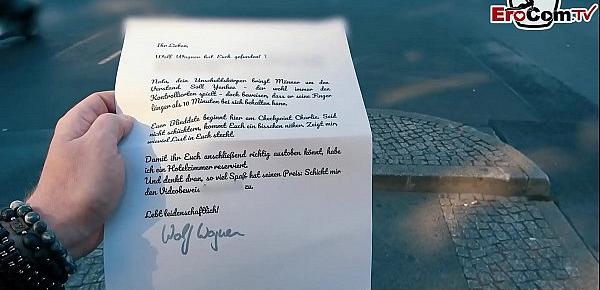 EroCom.TV
Ihr Lieben,
Wolf Wagner hat Euch gefunden!
Nola, dein Unschuldskörper bringt Männer um den
Verstand. Soll Yenkee - der wohl immer den
Kontrollierten spielt - doch beweisen, dass er seine Finger
länger als 10 Minuten bei sich behalten kann.
Euer Blinddate beginnt hier am Checkpoint Charlie. Seid
nicht schüchtern, kommt Euch ein bisschen näher. Zeigt mir
wieviel Lust in Euch steckt.
Damit ihr Euch anschließend richtig austoben könnt, habe
ich ein Hotelzimmer reserviert.
Und denkt dran, so viel Spaß hat seinen Preis: Schickt mir
den Videobeweis zu.
Lebt leidenschaftlich!
Wolf Wagner